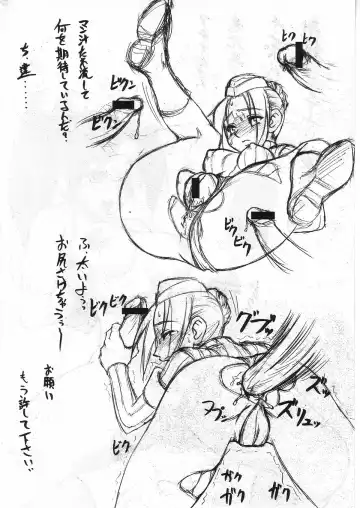 マン汁たれ流して
何を期待しているんだ?
ち違……
ビクン
ビクン
ビク
ビク
ビク
ビク
ふ…太いよっ
お尻さけちゃうっー
お願い
もう許して下さい
ビク
ビク
グプッ
ズッ
ズリュッ
ブプン
ビク
ビク
ガク
ガク
ガク
ガク